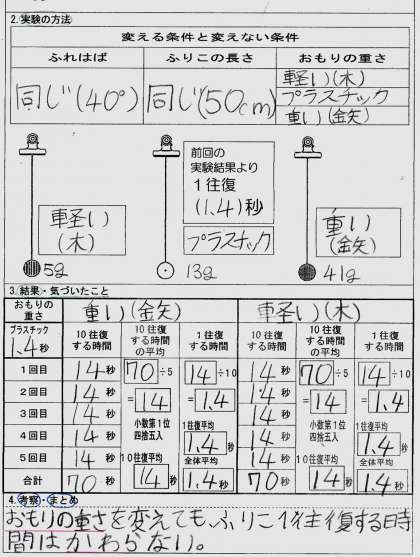 2.実験の方法
変える条件と変えない条件
ふれはば ふりこの長さ おもりの重さ
同じ(40°) 同じ(50cm) 軽い(木)
プラスチック
重い(金矢)
軽い
(木)
5g
前回の
実験結果より
1往復
(1.4)秒
プラスチック
13g
重い
(金矢)
41g
3.結果・気づいたこと
おもりの重さ 重い(金矢) 軽い(木)
プラスチック
1.4秒
10往復する時間 10往復する時間の平均 1往復する時間 10往復する時間 10往復する時間の平均 1往復する時間
1回目 14秒 70÷5 14÷10 14秒 70÷5 14÷10
2回目 14秒 =14 =1.4 14秒 =14 =1.4
3回目 14秒 小数第1位 14秒 小数第1位
4回目 14秒 四捨五入 1往復平均 1.4秒 14秒 四捨五入 1往復平均 1.4秒
5回目 14秒 10往復平均 全体平均 14秒 10往復平均 全体平均
合計 70秒 14秒 1.4秒 70秒 14秒 1.4秒
4.考察・まとめ
おもりの重さを変えても、ふりこ1往復する時
間はかわらない。